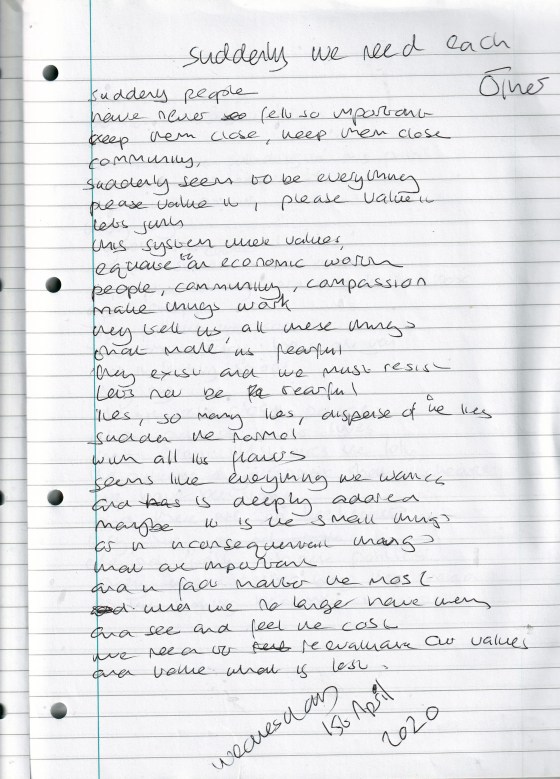 suddenly we need each
Other
suddenly people
have never felt so important
keep them close, keep them close
community,
suddenly seem to be everything
please value it, please value it
lets junk
this system where values,
equate to an economic worth
people, community, compassion
make things work
they tell us, all these things
that make us fearful
they exist and we must resist
Lets not be fearful
lies, so many lies, dispense of the lies
sudden the normal
with all its flaws
seems like everything we wanted
and is deeply adored
maybe it is the small things
as in inconsequential things
that are important
and in fact matter the most
when we no longer have them
and see and feel the cost
we need to reevaluate our values
and value what is lost.
Wednesday
1st April
2020